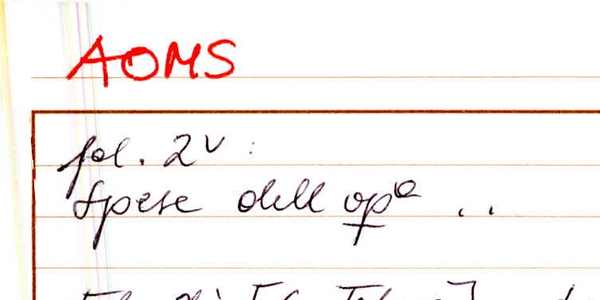 AOMS
fol. 2v:
Spese dell opa ..